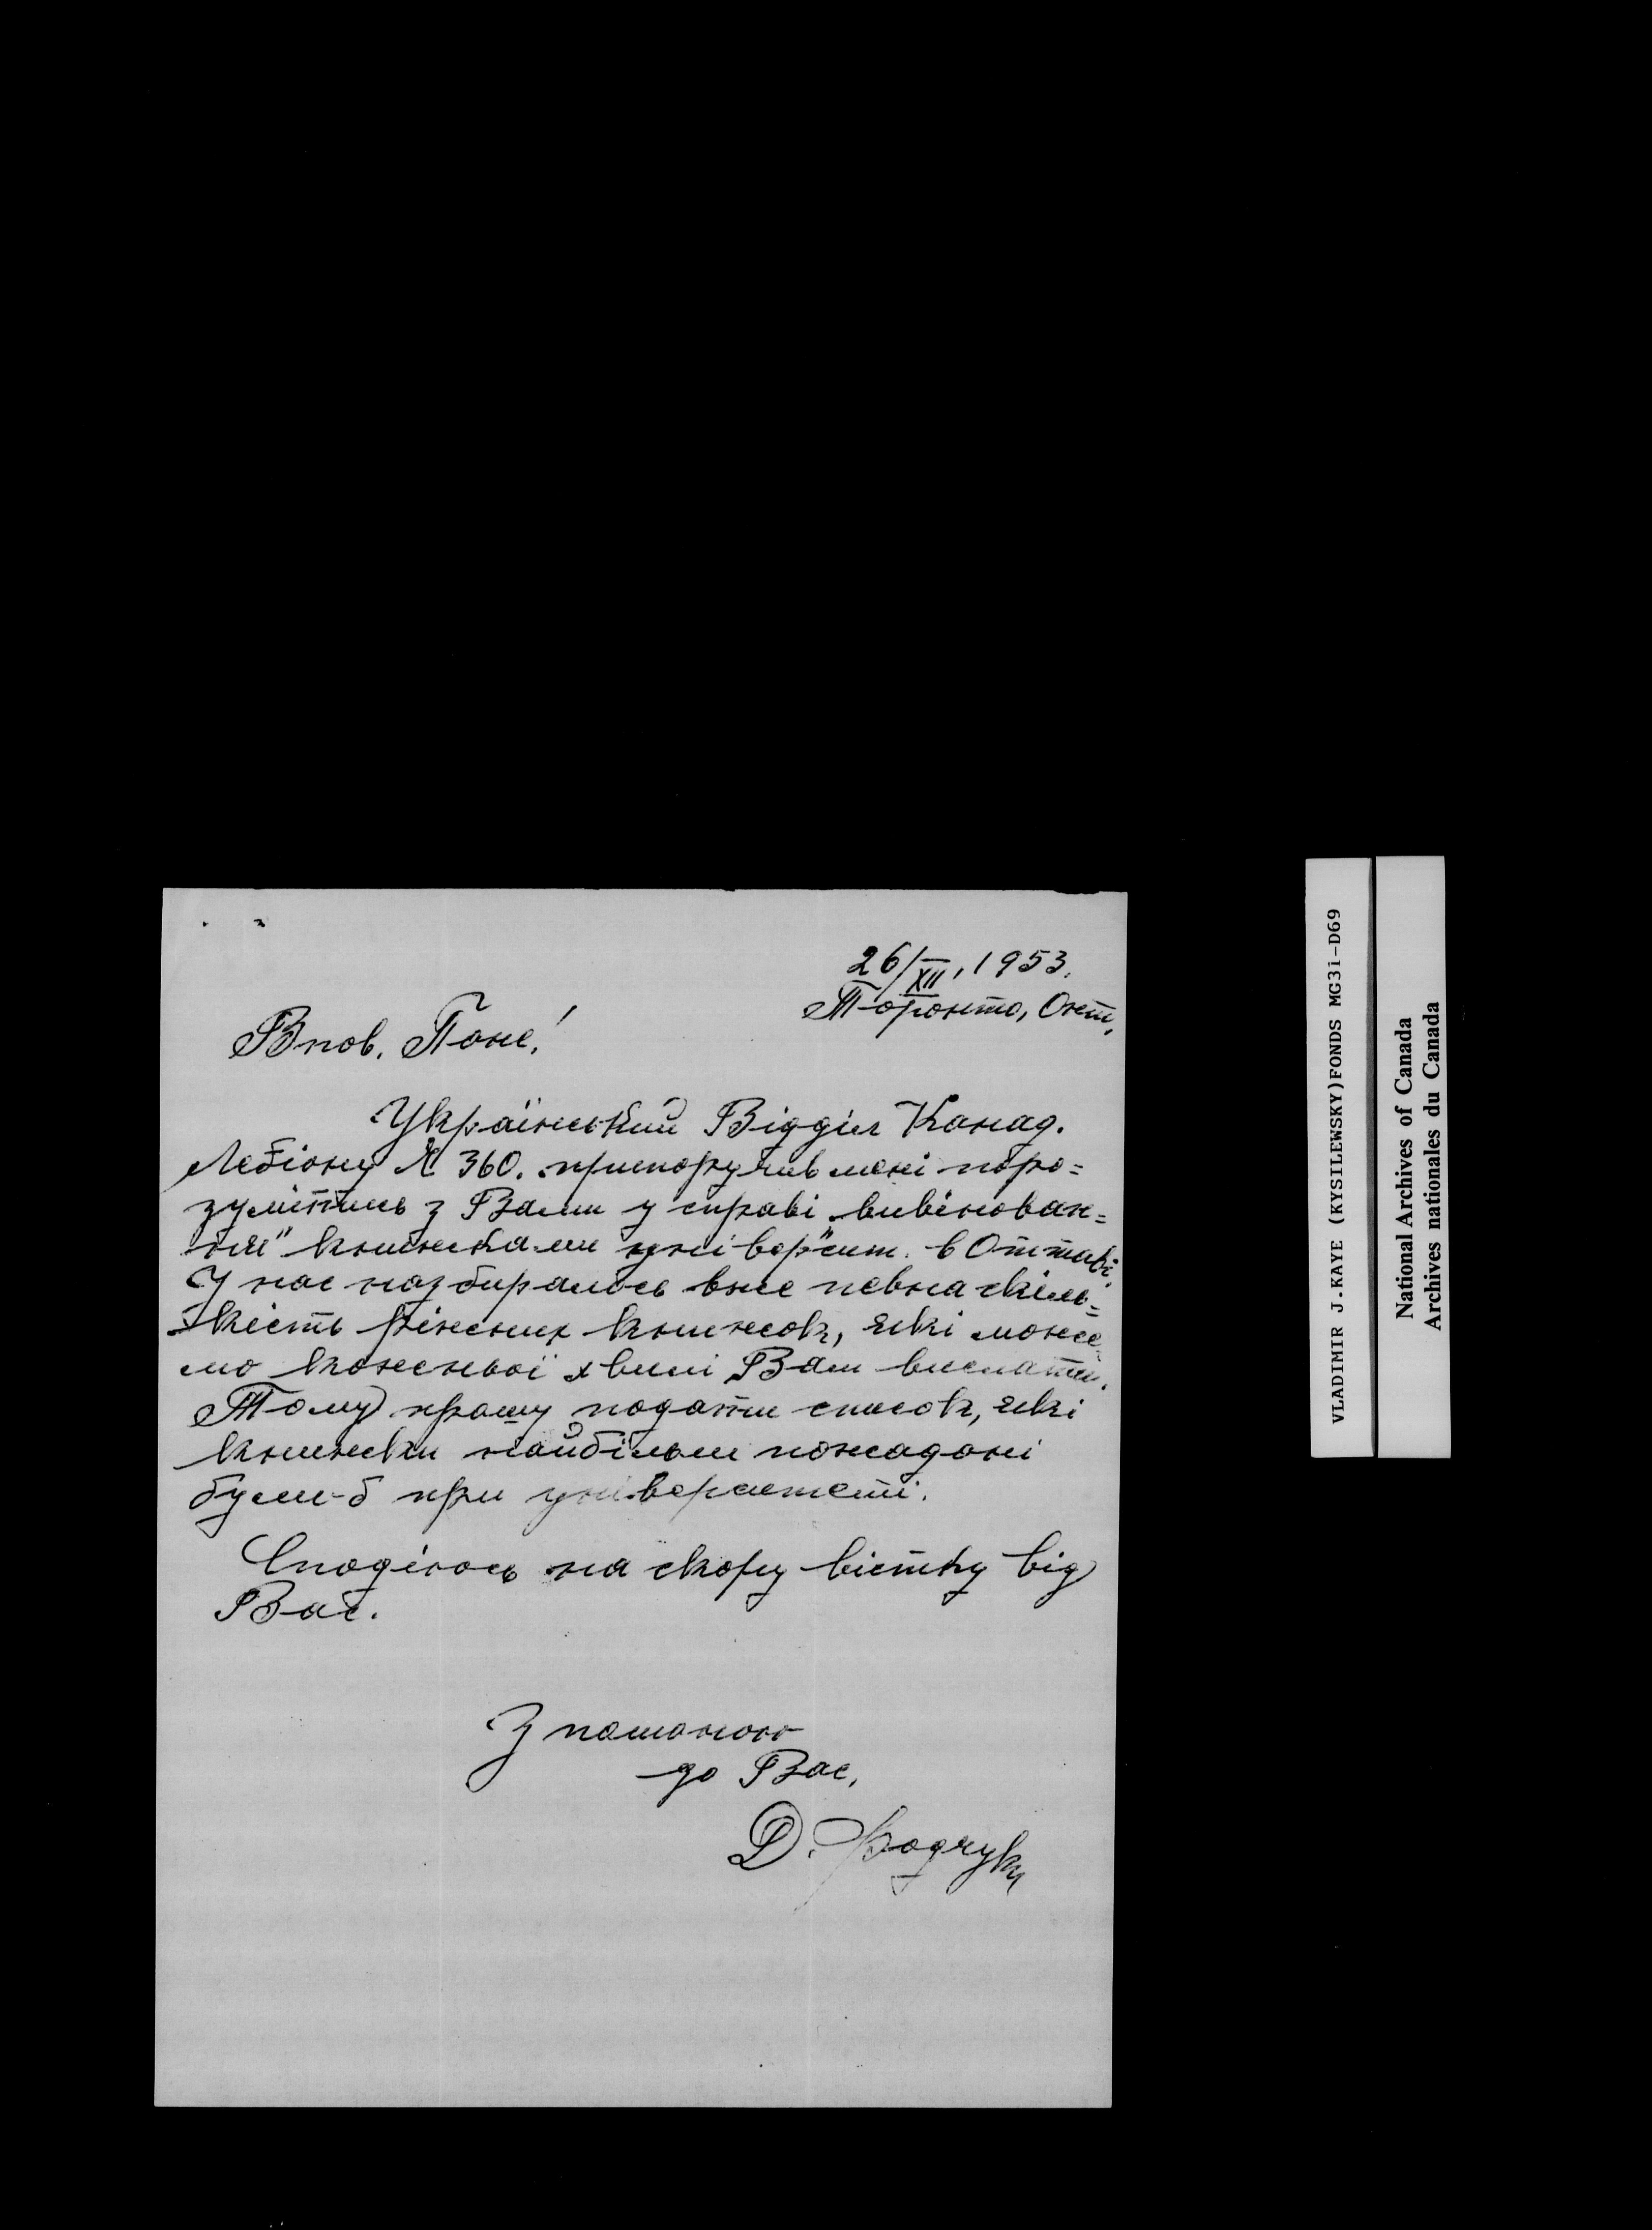 26/XII, 1953.
Торонто, Онт.
Впов. Пане!
Український Відділ Канад.
Леґіону № 360. припоручив мені поро=
зумітись з Вами у справі „вивінован=
ня" книжками університ. в Оттаві.
У нас назбиралось вже певна скіль=
кість ріжних книжок, які може
мо кожної хвилі Вам вислати.
Тому прошу подати список, які
книжки найбільш пожадані
були-б при університеті.
Сподіюсь на скору вістку від
Вас.
З пошаною
до Вас,
Д.
VLADIMIR J.KAYE (KYSILEWSKY)FONDS MG31-D69
National Archives of Canada
Archives nationales du Canada